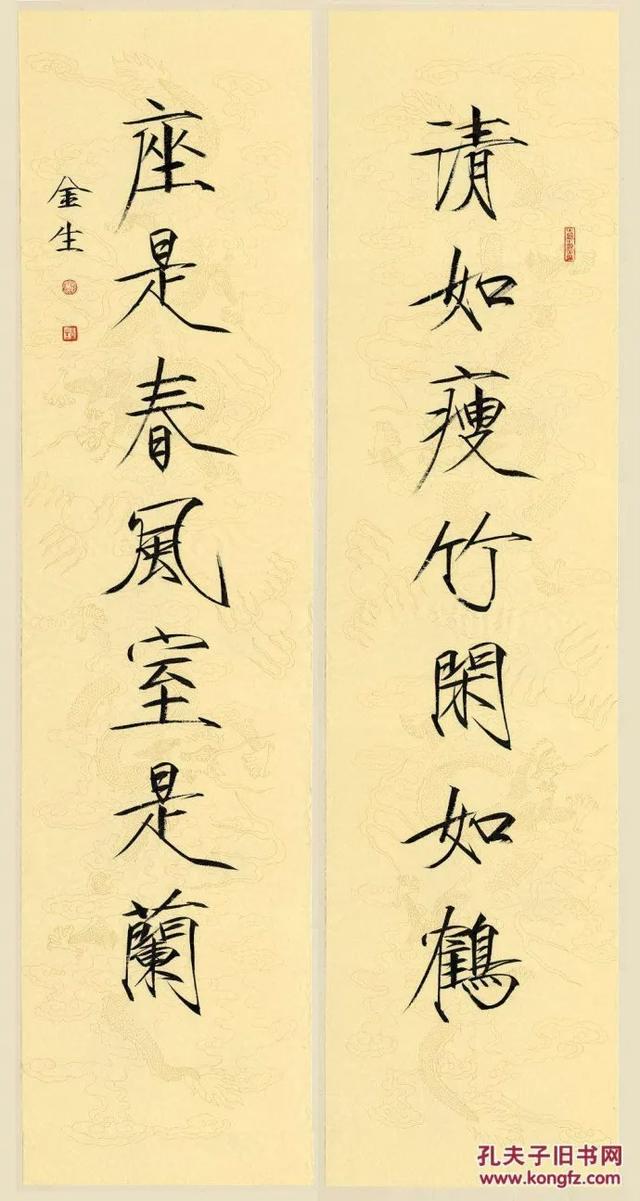 请如瘦竹閑如鶴
座是春風室是蘭
金生
孔夫子旧书网
www.kongfz.com